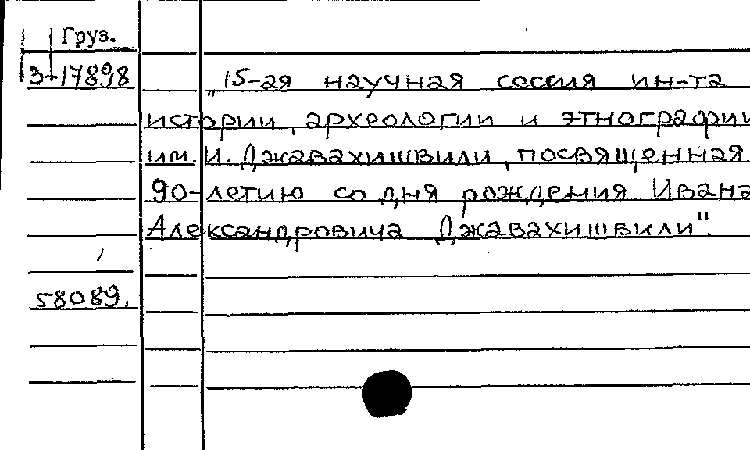 Груз.
3-17898
„15-ая научная сессия ин-та
истории, археологии и этнографии
им. И. Джавахишвили, посвященная
90-летию со дня рождения Ивана
Александровича Джавахишвили".
58089.